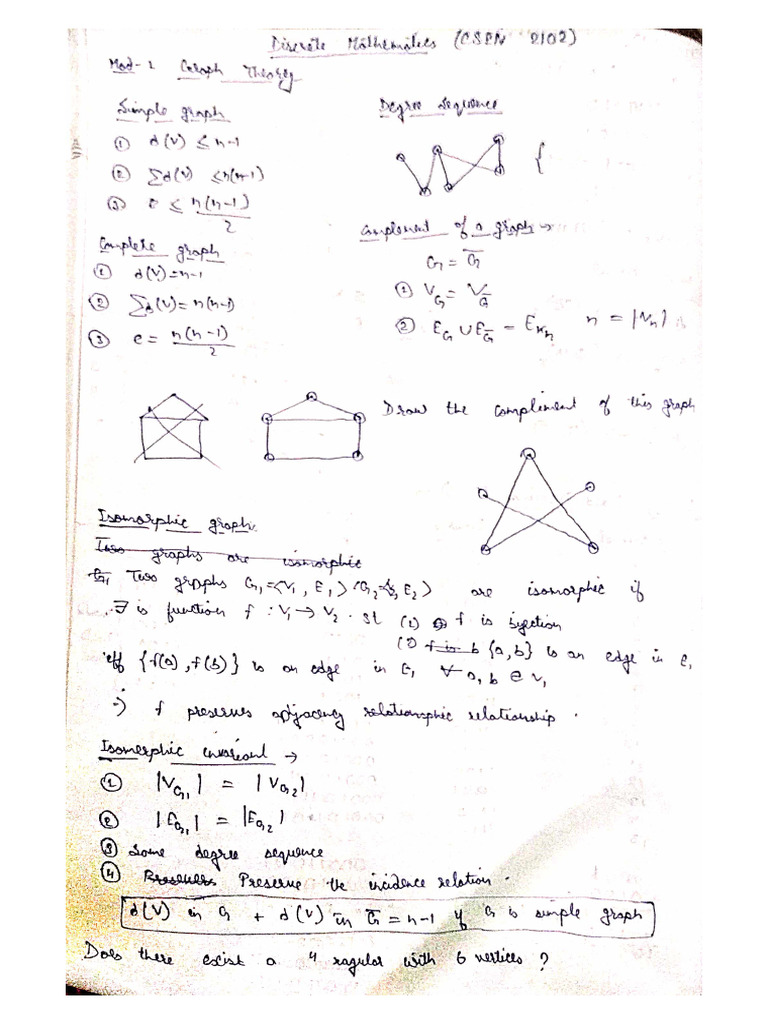 Discrete Mathematics (CSEN 2102)
Mod-1 Graph Theory
Simple graph
① d(V) ≤ n-1
② Σd(v) ≤ n(n-1)
③ e ≤ n(n-1)/2
Complete graph
① d(V)=n-1
② Σd(V)= n(n-1)
③ e = n(n-1)/2
Degree Sequence
{
Complement of a graph →
G = G̅
① V_G = V_G̅
② E_G ∪ E_G̅ = E_Kn n = |V_n|
Draw the complement of this graph
Isomorphic graph
Two graphs are isomorphic
Two graphs G₁=<V₁, E₁> G₂=<V₂, E₂> are isomorphic if
∃ is function f : V₁→V₂ . st (1) f is bijection
(2) f is {a,b} is an edge in E₁
iff {f(a), f(b)} is an edge in G₁ ∀ a, b ∈ V₁
→ f preserves adjacency relationship .
Isomorphic invariant →
① |V_G1| = |V_G2|
② |E_G1| = |E_G2|
③ Same degree sequence
④ Preserves Preserve the incidence relation .
d(V) in G + d(V) in G̅ = n-1 if G is simple graph
Does there exist a 4 ragular with 6 vertices ?